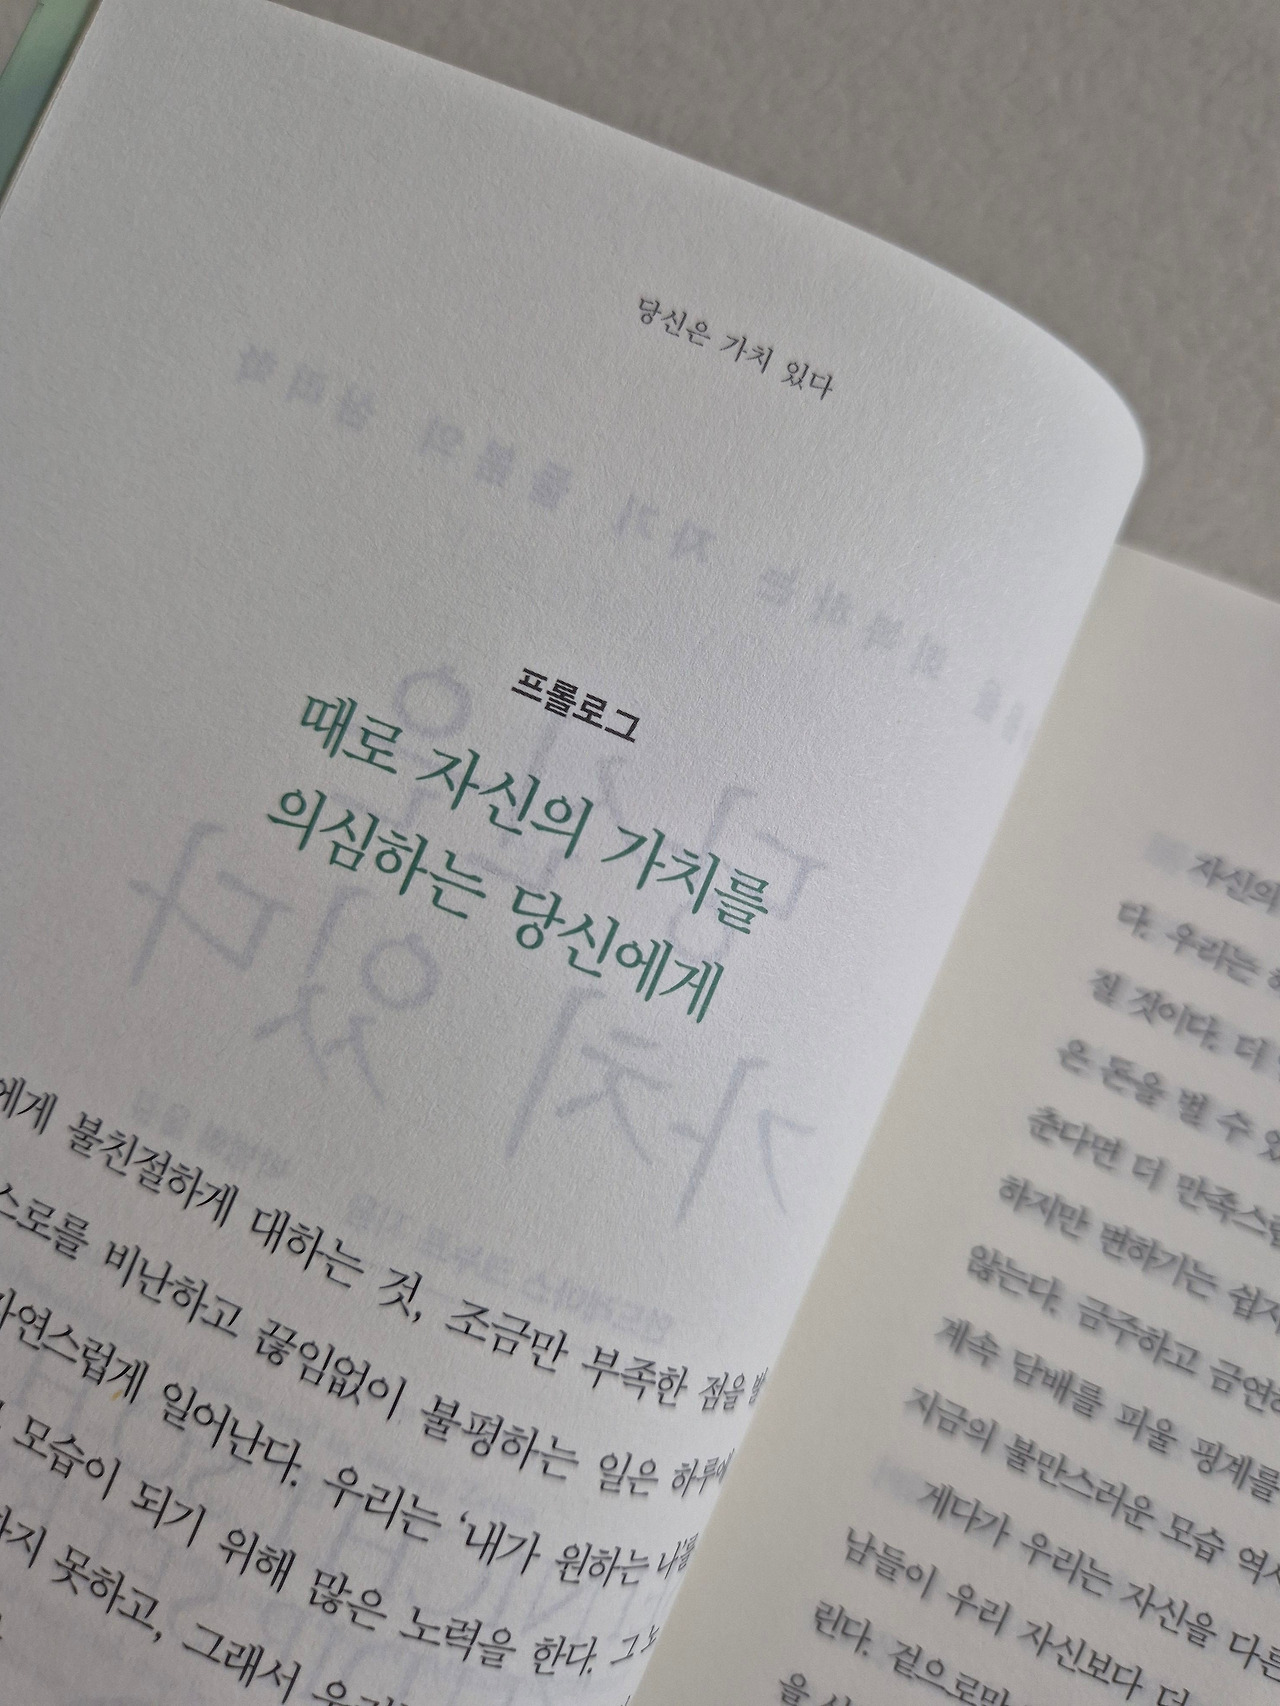 당신은 가치 있다
프롤로그
때로 자신의 가치를
의심하는 당신에게
에게 불친절하게 대하는 것, 조금만 부족한 점을
스로를 비난하고 끊임없이 불평하는 일은 하루에
자연스럽게 일어난다. 우리는 ‘내가 원하는 나’를
모습이 되기 위해 많은 노력을 한다. 그
하지 못하고, 그래서
자신의
다. 우리는
질 것이다. 더
은 돈을 벌 수
춘다면 더 만족스럽
하지만 변하기는 쉽지
않는다. 금주하고 금연하
계속 담배를 피울 핑계를
지금의 불만스러운 모습 역시
게다가 우리는 자신을 다른
남들이 우리 자신보다 더
린다. 겉으로만
을